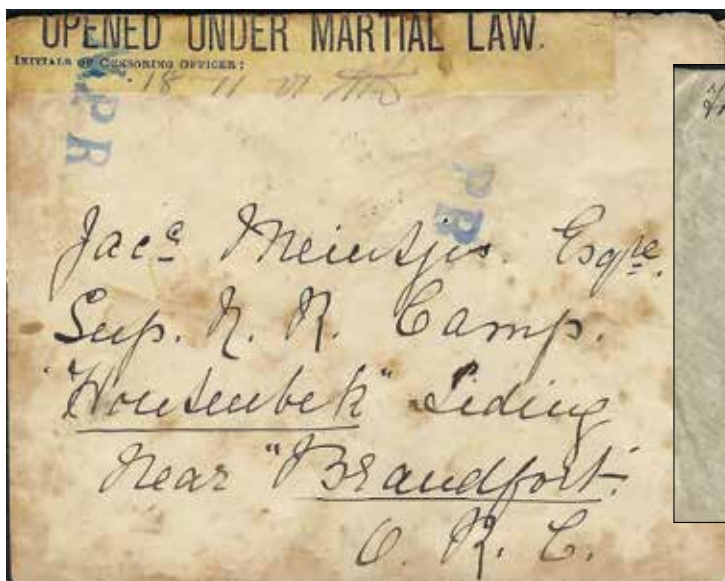 OPENED UNDER MARTIAL LAW.
INITIALS OF CENSORING OFFICER:
18 11 01
PR
PR
Jacs Meintjes. Esqre.
Sup. N. R. Camp.
"Houtenbek" Siding
Near "Brandfort."
O. R. C.